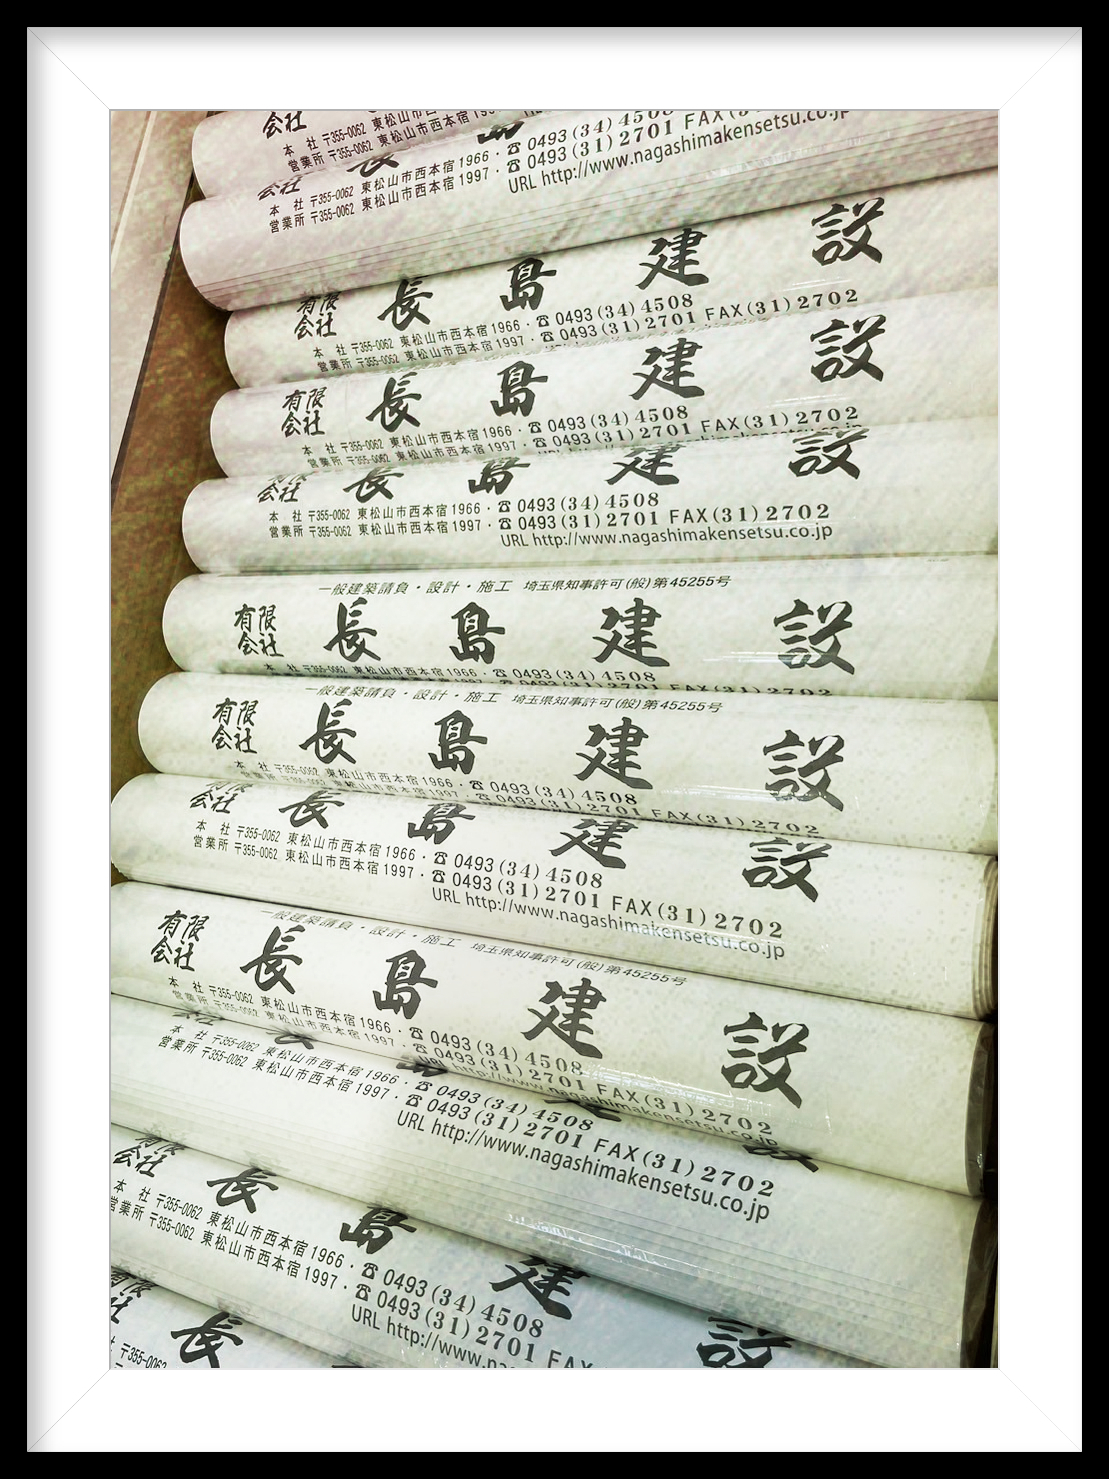 会社
本 社 〒355-0062 東松山市西本宿1966・☎0493(34)4508
営業所 〒355-0062 東松山市西本宿1997・☎0493(31)2701 FAX
会社
本 社 〒355-0062 東松山市西本宿1966・☎0493(34)4508
営業所 〒355-0062 東松山市西本宿1997・☎0493(31)2701 FAX
URL http://www.nagashimakensetsu.co.jp
有限会社 長島建設
本 社 〒355-0062 東松山市西本宿1966・☎0493(34)4508
営業所 〒355-0062 東松山市西本宿1997・☎0493(31)2701 FAX(31)2702
有限会社 長島建設
本 社 〒355-0062 東松山市西本宿1966・☎0493(34)4508
営業所 〒355-0062 東松山市西本宿1997・☎0493(31)2701 FAX(31)2702
会社 長島建設
本 社 〒355-0062 東松山市西本宿1966・☎0493(34)4508
営業所 〒355-0062 東松山市西本宿1997・☎0493(31)2701 FAX(31)2702
URL http://www.nagashimakensetsu.co.jp
一般建築請負・設計・施工 埼玉県知事許可(般)第45255号
有限会社 長島建設
本 社 〒355-0062 東松山市西本宿1966・☎0493(34)4508
0493(31)2701 FAX(31)2702
一般建築請負・設計・施工 埼玉県知事許可(般)第45255号
有限会社 長島建設
本 社 〒355-0062 東松山市西本宿1966・☎0493(34)4508
〒355-0062 東松山市西本宿1997・☎0493(31)2701 FAX(31)2702
会社 長島建設
本 社 〒355-0062 東松山市西本宿1966・☎0493(34)4508
営業所 〒355-0062 東松山市西本宿1997・☎0493(31)2701 FAX(31)2702
URL http://www.nagashimakensetsu.co.jp
一般建築請負・設計・施工 埼玉県知事許可(般)第45255号
有限会社 長島建設
本 社 〒355-0062 東松山市西本宿1966・☎0493(34)4508
営業所 〒355-0062 東松山市西本宿1997・☎0493(31)2701 FAX(31)2702
URL http://www.nagashimakensetsu.co.jp
本 社 〒355-0062 東松山市西本宿1966・☎0493(34)4508
営業所 〒355-0062 東松山市西本宿1997・☎0493(31)2701 FAX(31)2702
URL http://www.nagashimakensetsu.co.jp
有限会社 長島建設
本 社 〒355-0062 東松山市西本宿1966・☎0493(34)4508
営業所 〒355-0062 東松山市西本宿1997・☎0493(31)2701 FAX
URL http://www.nagashimakensetsu
長
〒355-0062